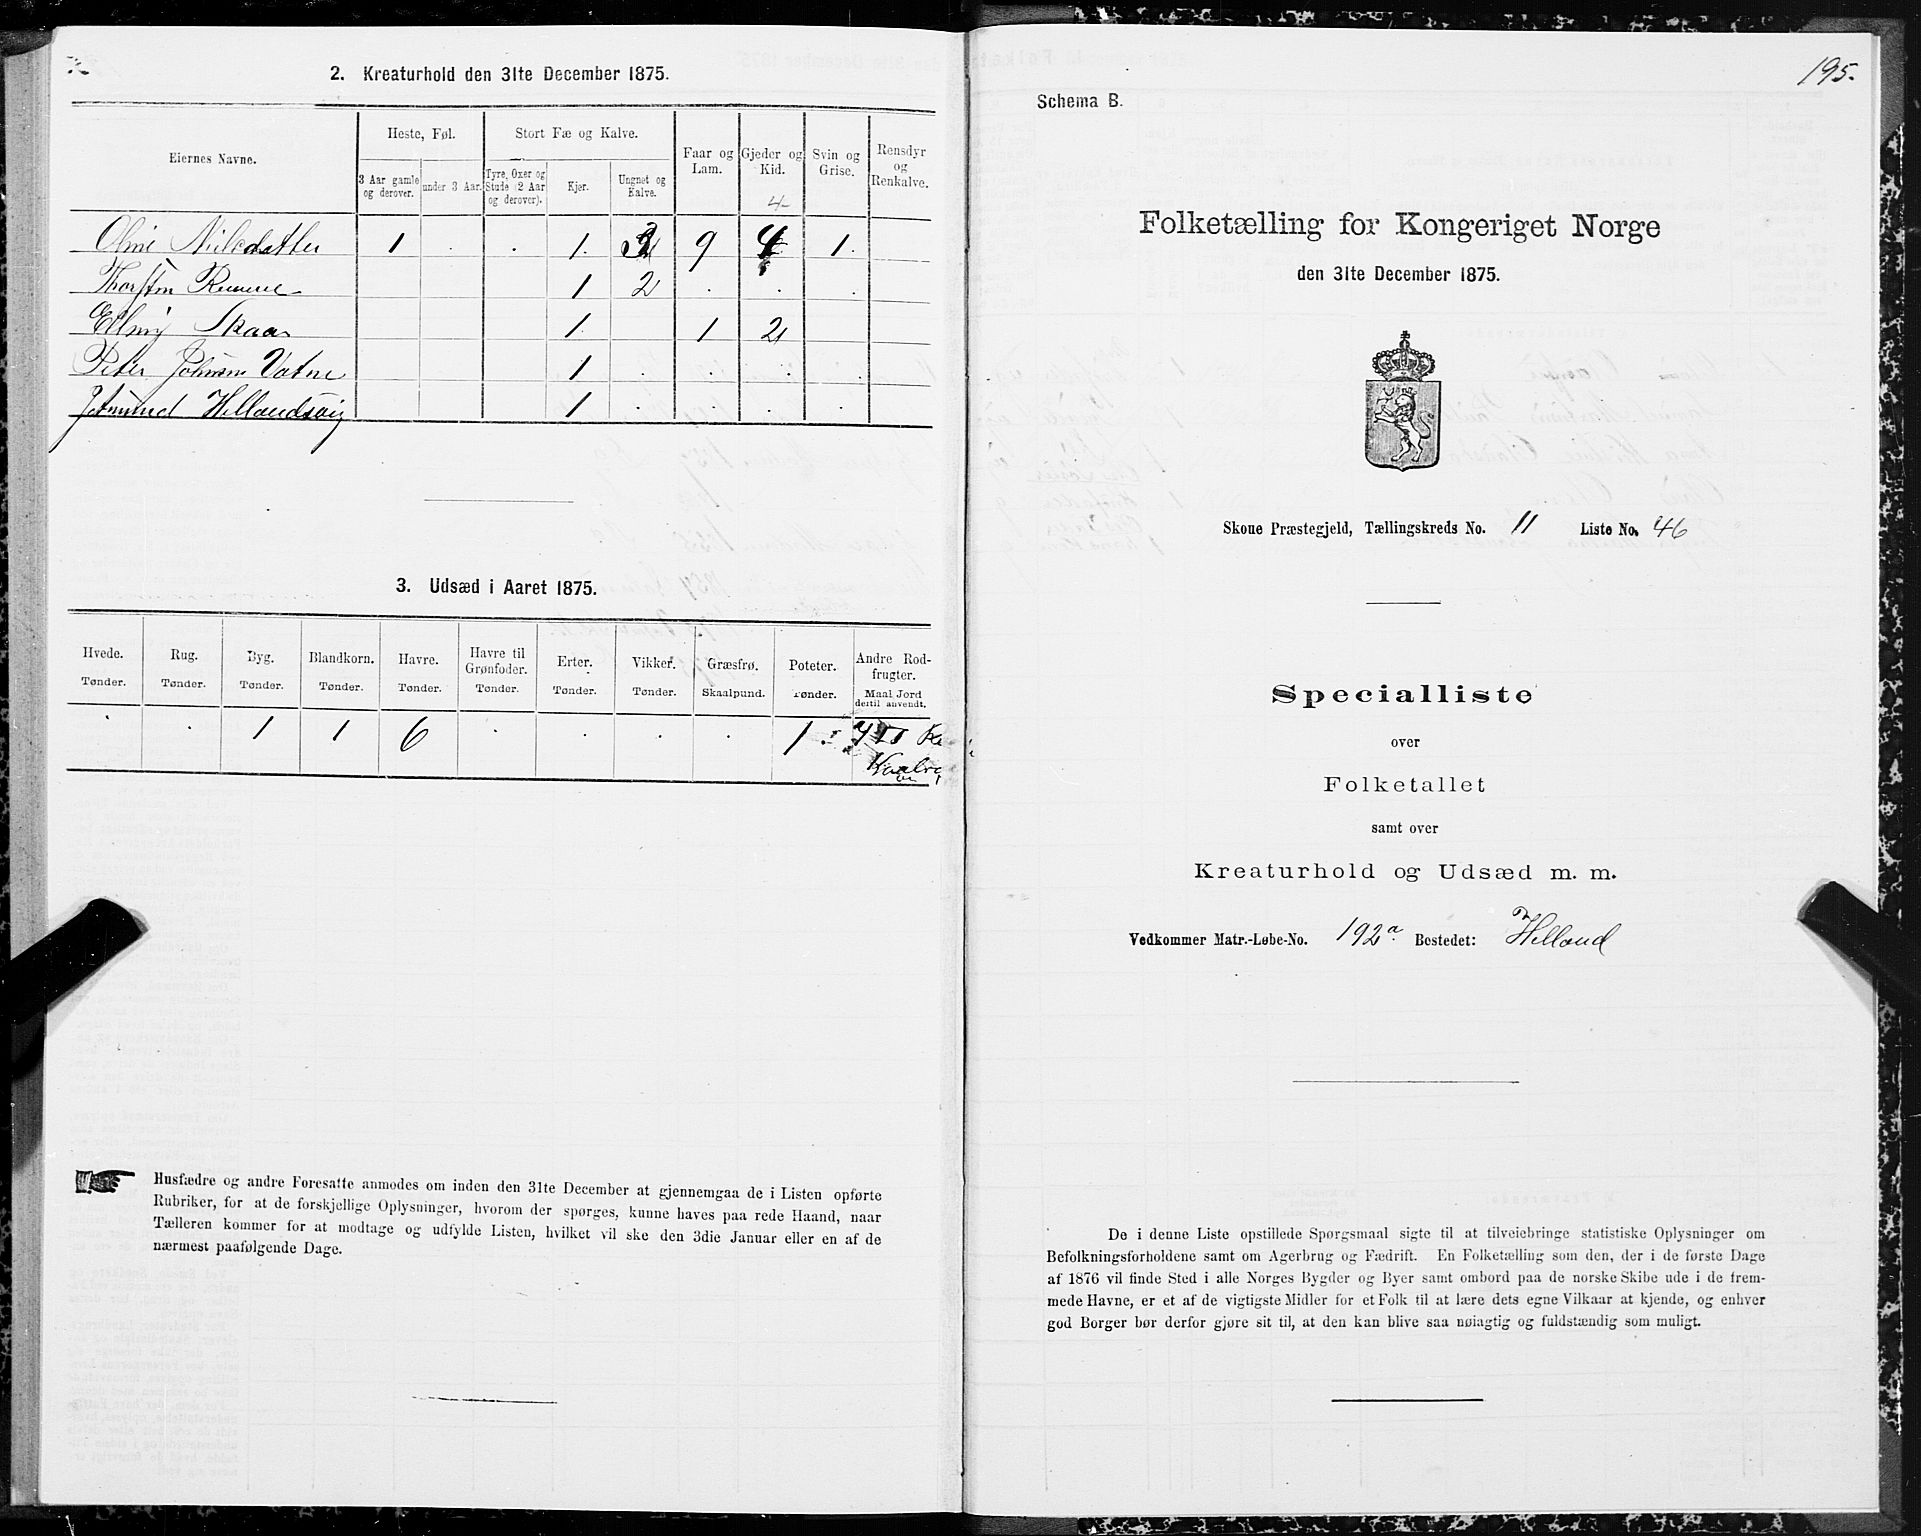 2. Kreaturhold den 31te December 1875.
Eiernes Navne.
Heste, Føl.
Stort Fæ og Kalve.
Faar og Lam.
Gjeder og Kid.
Svin og Grise.
Rensdyr og Renkalve.
3 Aar gamle og derover.
under 3 Aar.
Tyre, Oxer og Stude (2 Aar og derover).
Kjør.
Ungnet og Kalve.
4
Nilsdatter 1 . . 1. 9 1.
1 2 . . .
Skaar 1. 1 2
Peter Vatne 1 . . . .
Hellandsvig 1 . . . .
3. Udsæd i Aaret 1875.
Hvede. Rug. Byg. Blandkorn. Havre. Havre til Grønfoder. Erter. Vikker. Græsfrø. Poteter. Andre Rodfrugter.
Tønder. Tønder. Tønder. Tønder. Tønder. Tønder. Tønder. Tønder. Skaalpund. Tønder. Maal Jord dertil anvendt.
. . 1 1 6 . . . . 1
Husfædre og andre Foresatte anmodes om inden den 31te December at gjennemgaa de i Listen opførte
Rubriker, for at de forskjellige Oplysninger, hvorom der spørges, kunne haves paa rede Haand, naar
Tælleren kommer for at modtage og udfylde Listen, hvilket vil ske den 3die Januar eller en af de
nærmest paafølgende Dage.
195.
Schema B.
Folketælling for Kongeriget Norge
den 31te December 1875.
Skoue Præstegjeld, Tællingskreds No. 11 Liste No. 46
Specialliste
over
Folketallet
samt over
Kreaturhold og Udsæd m. m.
Vedkommer Matr.-Løbe-No. 192a. Bostedet: Helland
De i denne Liste opstillede Spørgsmaal sigte til at tilveiebringe statistiske Oplysninger om
Befolkningsforholdene samt om Agerbrug og Fædrift. En Folketælling som den, der i de første Dage
af 1876 vil finde Sted i alle Norges Bygder og Byer samt ombord paa de norske Skibe ude i de frem-
mede Havne, er et af de vigtigste Midler for et Folk til at lære dets egne Vilkaar at kjende, og enhver
god Borger bør derfor gjøre sit til, at den kan blive saa nøiagtig og fuldstændig som muligt.